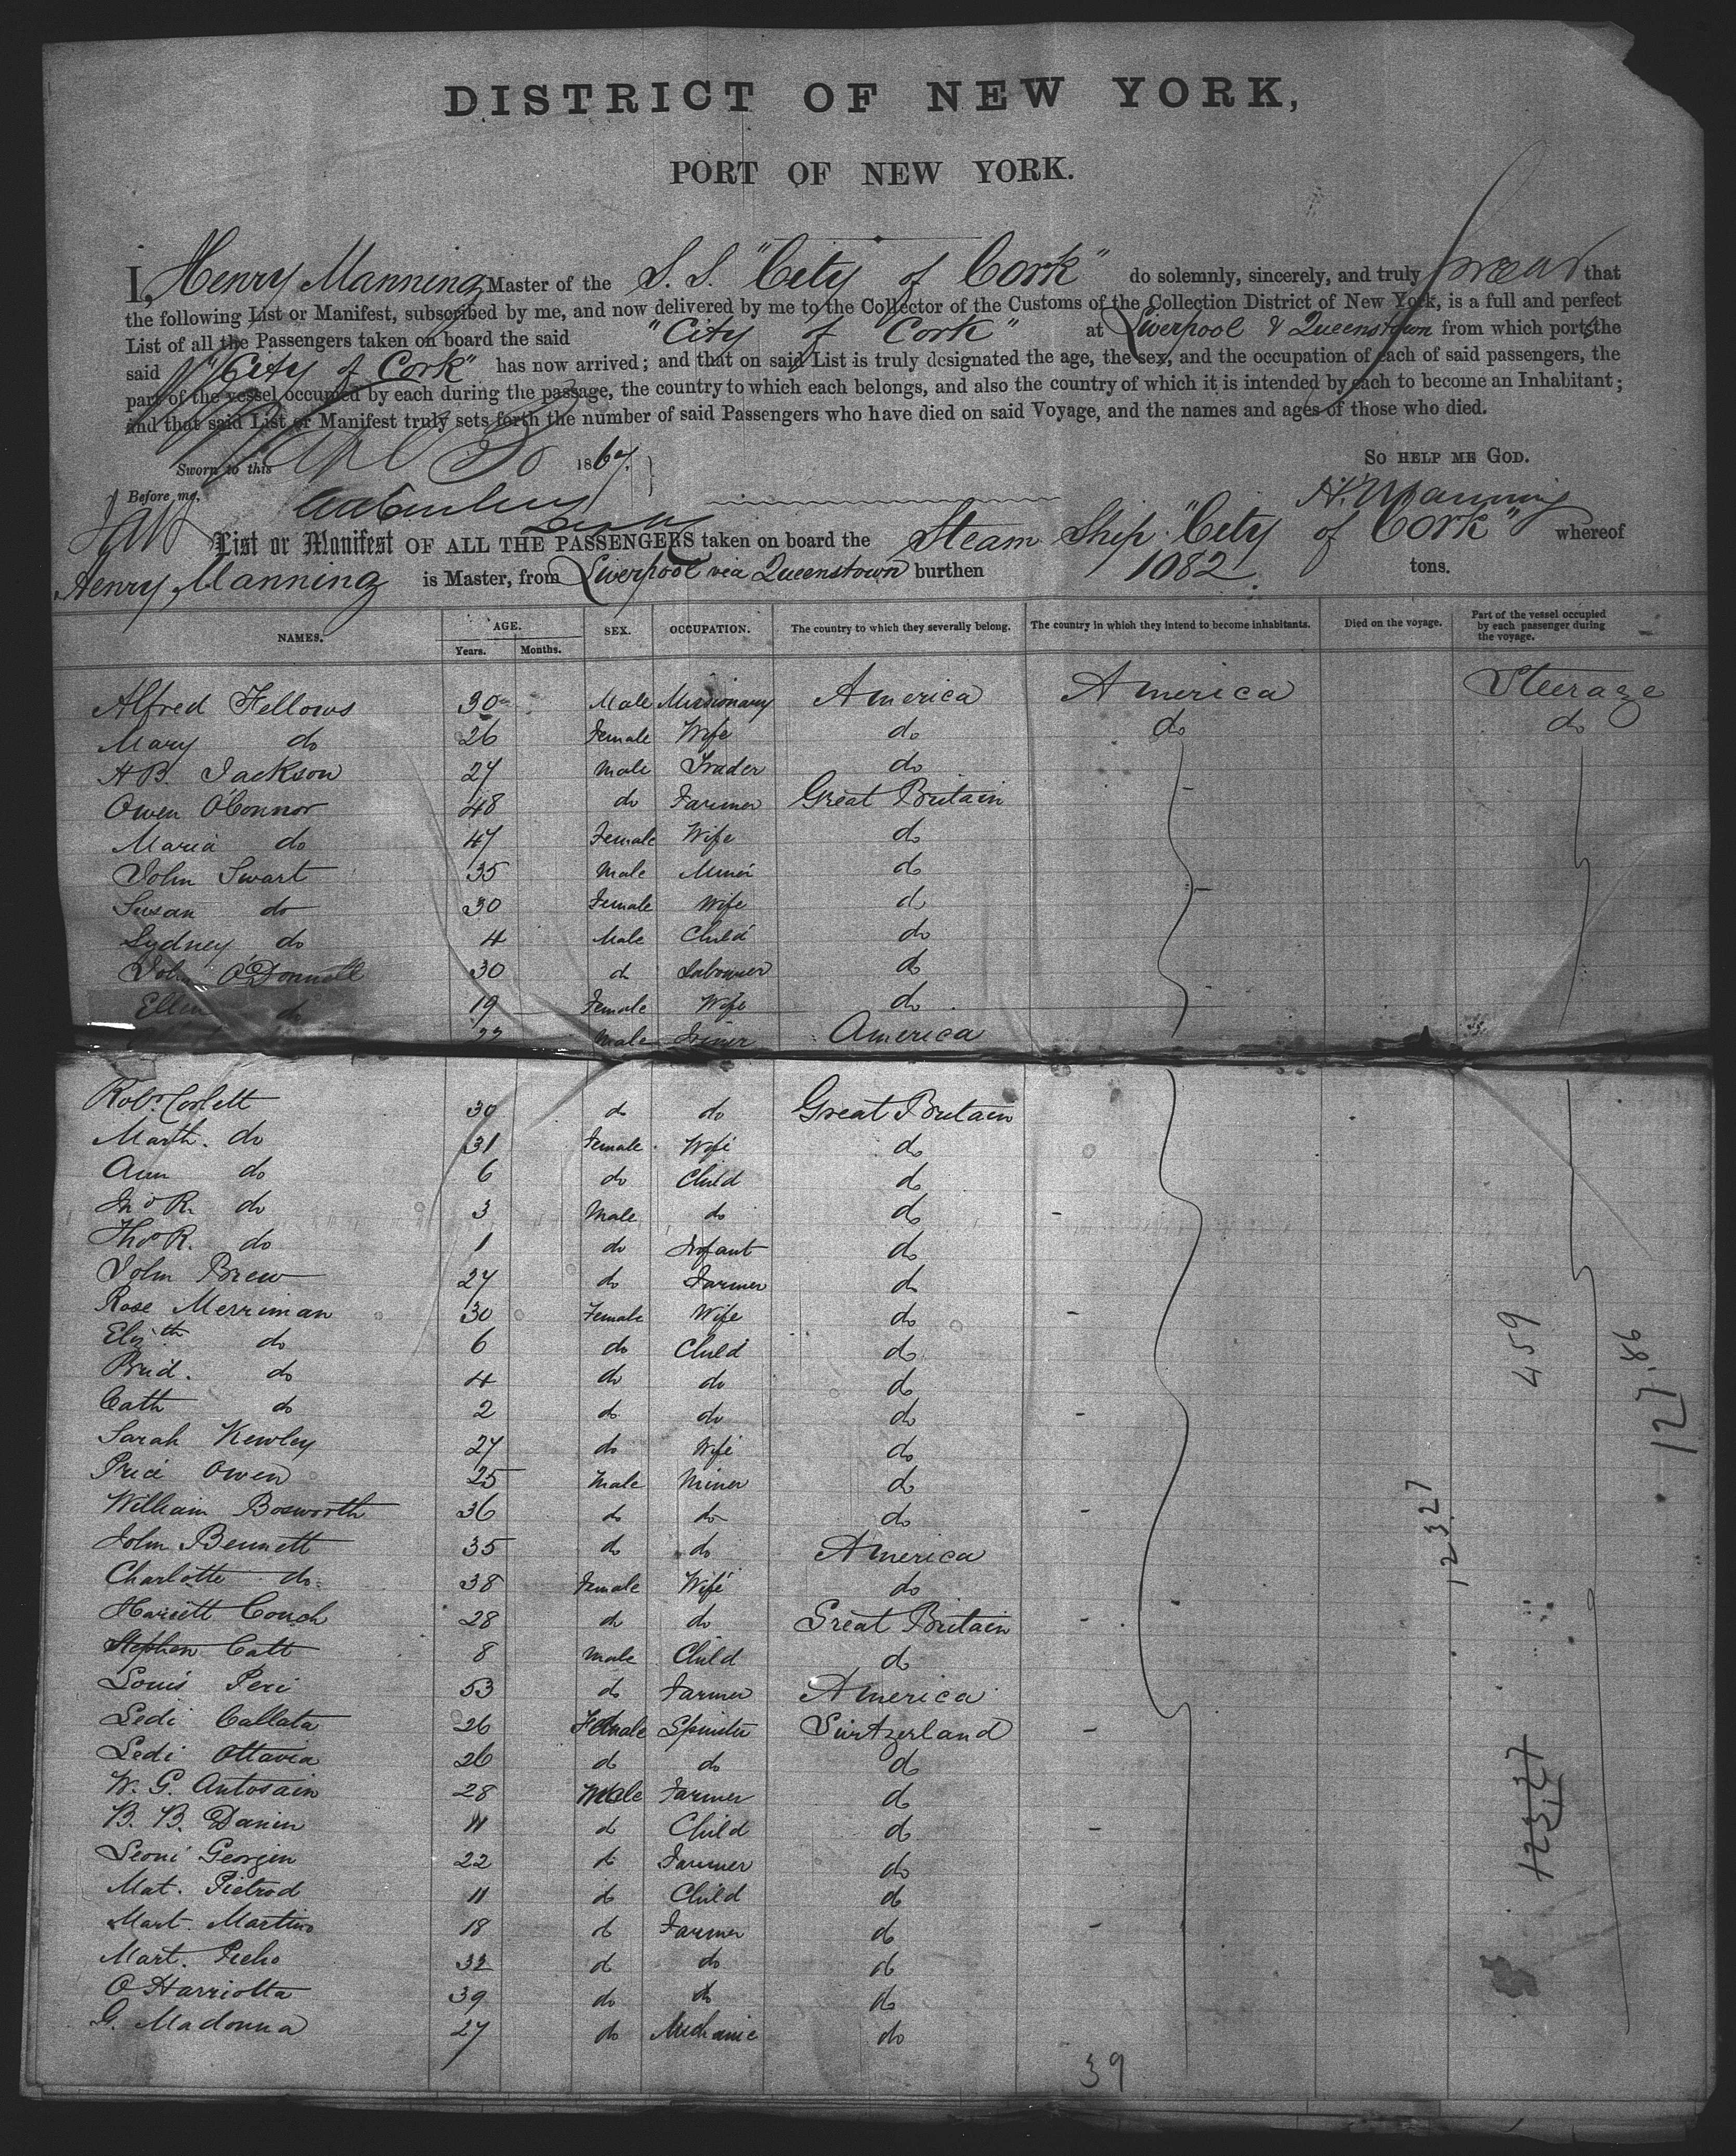 DISTRICT OF NEW YORK,
PORT OF NEW YORK.
I, Henry Manning Master of the S.S. "City of Cork" do solemnly, sincerely, and truly swear that
the following List or Manifest, subscribed by me, and now delivered by me to the Collector of the Customs of the Collection District of New York, is a full and perfect
List of all the Passengers taken on board the said "City of Cork" at Liverpool & Queenstown from which ports the
said "City of Cork" has now arrived; and that on said List is truly designated the age, the sex, and the occupation of each of said passengers, the
part of the vessel occupied by each during the passage, the country to which each belongs, and also the country of which it is intended by each to become an Inhabitant;
and that said List or Manifest truly sets forth the number of said Passengers who have died on said Voyage, and the names and ages of those who died.
Sworn to this Apl 30 1867. So help me God.
Before me, H. Manning
List or Manifest OF ALL THE PASSENGERS taken on board the Steam Ship "City of Cork" whereof
Henry Manning is Master, from Liverpool via Queenstown burthen 1082 tons.
NAMES. AGE. Years. Months. SEX. OCCUPATION. The country to which they severally belong. The country in which they intend to become inhabitants. Died on the voyage. Part of the vessel occupied by each passenger during the voyage.
Alfred Fellows 30 Male Missionary America America Steerage
Mary do 26 Female Wife do do do
H B. Jackson 27 Male Trader do
Owen O'Connor 48 do Farmer Great Britain
Maria do 47 Female Wife do
John Swart 35 Male Miner do
Susan do 30 Female Wife do
Sydney do 4 Male Child do
John O'Donnell 30 do Labourer do
Ellen do 19 Female Wife do
Male America
Robt. Corlett 30 do do Great Britain
Marth. do 31 Female Wife do
Ann do 6 do Child do
Jno R. do 3 Male do do
Thos R. do 1 do Infant do
John Brew 27 do Farmer do
Rose Merriman 30 Female Wife do
Elizth do 6 do Child do
Brid. do 4 do do do
Cath do 2 do do do
Sarah Kewley 27 do Wife do
Price Owen 25 Male Miner do
William Bosworth 36 do do do
John Bennett 35 do do America
Charlotte do 38 Female Wife do
Harriett Couch 28 do do Great Britain
Stephen Catt 8 Male Child do
Louis Peri 53 do Farmer America
Ledi Callata 26 Female Spinster Switzerland
Ledi Ottavia 26 do do do
W. G. Antosain 28 Male Farmer do
B. B. Danin 11 do Child do
Leoni Georgen 22 do Farmer do
Mat. Pietrod 11 do Child do
Mart. Martino 18 do Farmer do
Mart. 32 do do do
O Harriotta 39 do do do
G. Madonna 27 do Mechanic do
39
459
127.86
12327
123.27